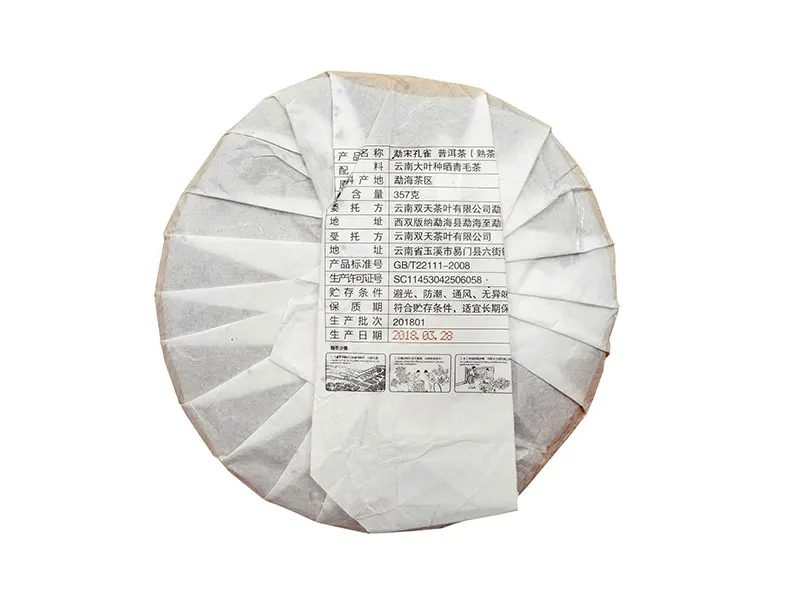 产品名称 勐宋孔雀 普洱茶(熟茶
配 料 云南大叶种晒青毛茶
料产地 勐海茶区
含量 357克
委托方 云南双天茶叶有限公司勐
地址 西双版纳勐海县勐海至勐
受托方 云南双天茶叶有限公司
地址 云南省玉溪市易门县六街
产品标准号 GB/T22111-2008
生产许可证号 SC11453042506058
贮存条件 避光、防潮、通风、无异味
保质期 符合贮存条件,适宜长期保
生产批次 201801
生产日期 2018.03.28